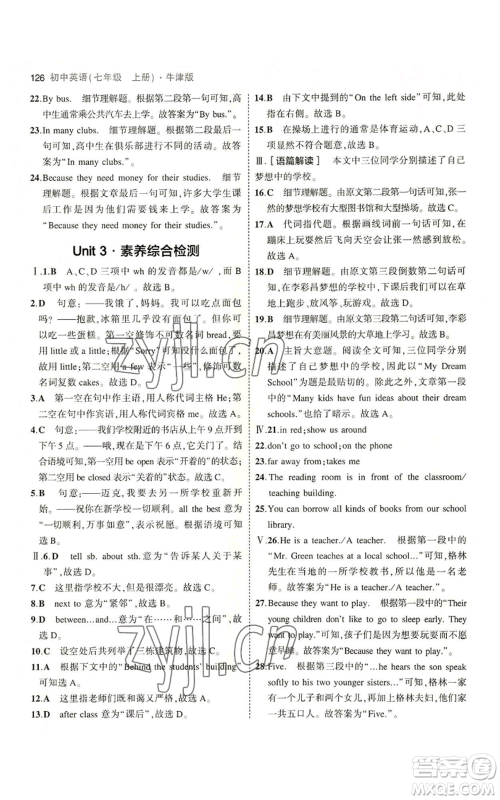 126 初中英语(七年级 上册)·牛津版
22.By bus. 细节理解题。根据第二段第一句可知,高
中生通常乘公共汽车去上学。故答案为“By bus.”
23.In many clubs. 细节理解题。根据第二段最后一
句可知,高中生在俱乐部进行不同的活动。故答
案为“In many clubs.”
24.Because they need money for their studies. 细节
理解题。根据第三段第一句可知,许多大学生课
后工作是因为他们的学习需要钱。故答案为
“Because they need money for their studies.”
Unit 3·素养综合检测
Ⅰ.1.B A、C、D 三项中 wh 的发音都是/w/,而 B
项中 wh 的发音是/h/。故选 B。
2.D 句意:——我饿了,妈妈。我可以吃点面包
吗?——抱歉,冰箱里没有面包了,但有一些,你可
以吃一些蛋糕。第一空修饰不可数名词 bread,要
用 little 或 a little;根据“Sorry”可知,第一空用
little。故用 little;第二空 a few 表示“一些”,修饰可数
名词复数 cakes。故选 D。
3.A 第一空在句中作主语,用人称代词主格 He;第
二空在句中作宾语,用人称代词宾格 me。故选 A。
4.C 句意:——我们学校附近的书店从上午 9 点开
到下午 5 点。——噢,现在下午 6 点,它关门了。结
合语境可知,第一空用 be open 表示“开着的”状态;
第二空用 be closed 表示“关着的”状态。故选 C。
5.B 句意:——迈克,我明天要去一所新学校。
——祝你在新学校一切顺利。all the best 意为“一
切顺利,万事如意”,切合语境。故选 B。
Ⅱ.6.D tell sb. about sth.意为“告诉某人关于某
事”,故选 D。
7.C 这里指学校不大,但是很漂亮。故选 C。
8.B next to 意为“紧邻”,故选 B。
9.D between...and...意为“在……和……之间”,故
选 D。
10.C 设空处后共列举了三栋建筑物,故选 C。
11.D 根据下文中的“Behind the students' building”
可知选 D。
12.A 这里指图书馆既美丽又现代。故选 A。
13.D after class 意为“课后”,故选 D。
14.B 由下文中的“On the left side”可知,此处
指在右侧。故选 B。
15.B 在操场上进行的通常是体育运动,A、C、D 三
项显然不符合题意。故选 B。
Ⅲ.[语篇解读] 本文中三位同学分别描述了自己
梦想中的学校。
16.C 细节理解题。由原文第二段第一句话可知,张一
然的梦想学校有大型图书馆和大型操场。故选 C。
17.A 代词指代题。根据画线词前一句话可知,在
蹦床上玩大家可以跳得很高。故选 A。
18.D 细节理解题。由原文第三段倒数第二句话可
知,在李响梦想中的学校,下课后我们可以在草
地上跑步、放风筝、做运动。故选 D。
19.B 细节理解题。由原文第三段可知,李彩昌
梦想的学校在有美丽风景的大草地上学习。故选 B。
20.A 主旨大意题。阅读全文可知,三位同学分别
描述了自己梦想中的学校,因此以“My Dream
School”为标题最贴切。故选 A。文章第一段中
的“Many kids have fun ideas about their dream
schools”也是提示。
Ⅳ.21.in red;show us around
22.don't go to school;on the phone
23.far away from;takes me
24.The reading room is in front of the classroom/
teaching building.
25.You can borrow all kinds of books from our school
library.
Ⅴ.26.He is a teacher./A teacher. 根据第一段中的
“Mr. Green teaches at a local school...”可知,格林
先生在当地的一所学校教书,因此他是一名老
师。故答案为“He is a teacher./A teacher.”
27.Because they want to play. 根据第一段中的“Their
young children don't like to go to sleep early. They
want to play.”可知,格林先生的孩子不想早睡是
因为他们想玩。故答案为“Because they want to
play.”
28.Five. 根据第三段中的“...he hears the son speak
softly to his two younger sisters...”可知,格林夫
妇有一个儿子和两个女儿,再加上他们夫妇俩,一
共五口人。故答案为“Five.”
zyjl.cn
zyjl.cn